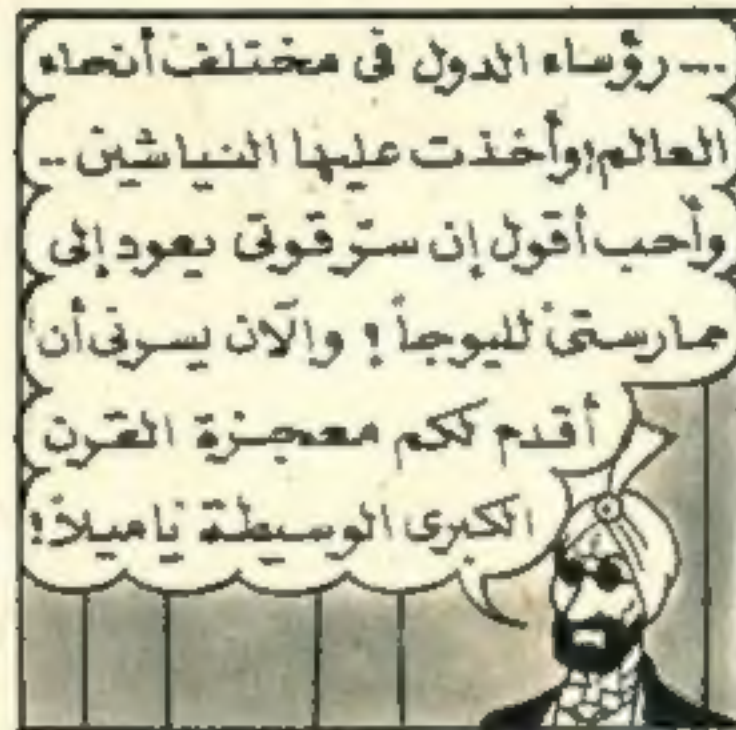 ... رؤساء الدول فى مختلف أنحاء
العالم! وأخذت عليها النياشين ..
وأحب أقول إن سرّ قوتى يعود إلى
ممارستى لليوجا ! والآن يسرنى أن
أقدم لكم معجزة القرن
الكبرى الوسيطة ياميلا!